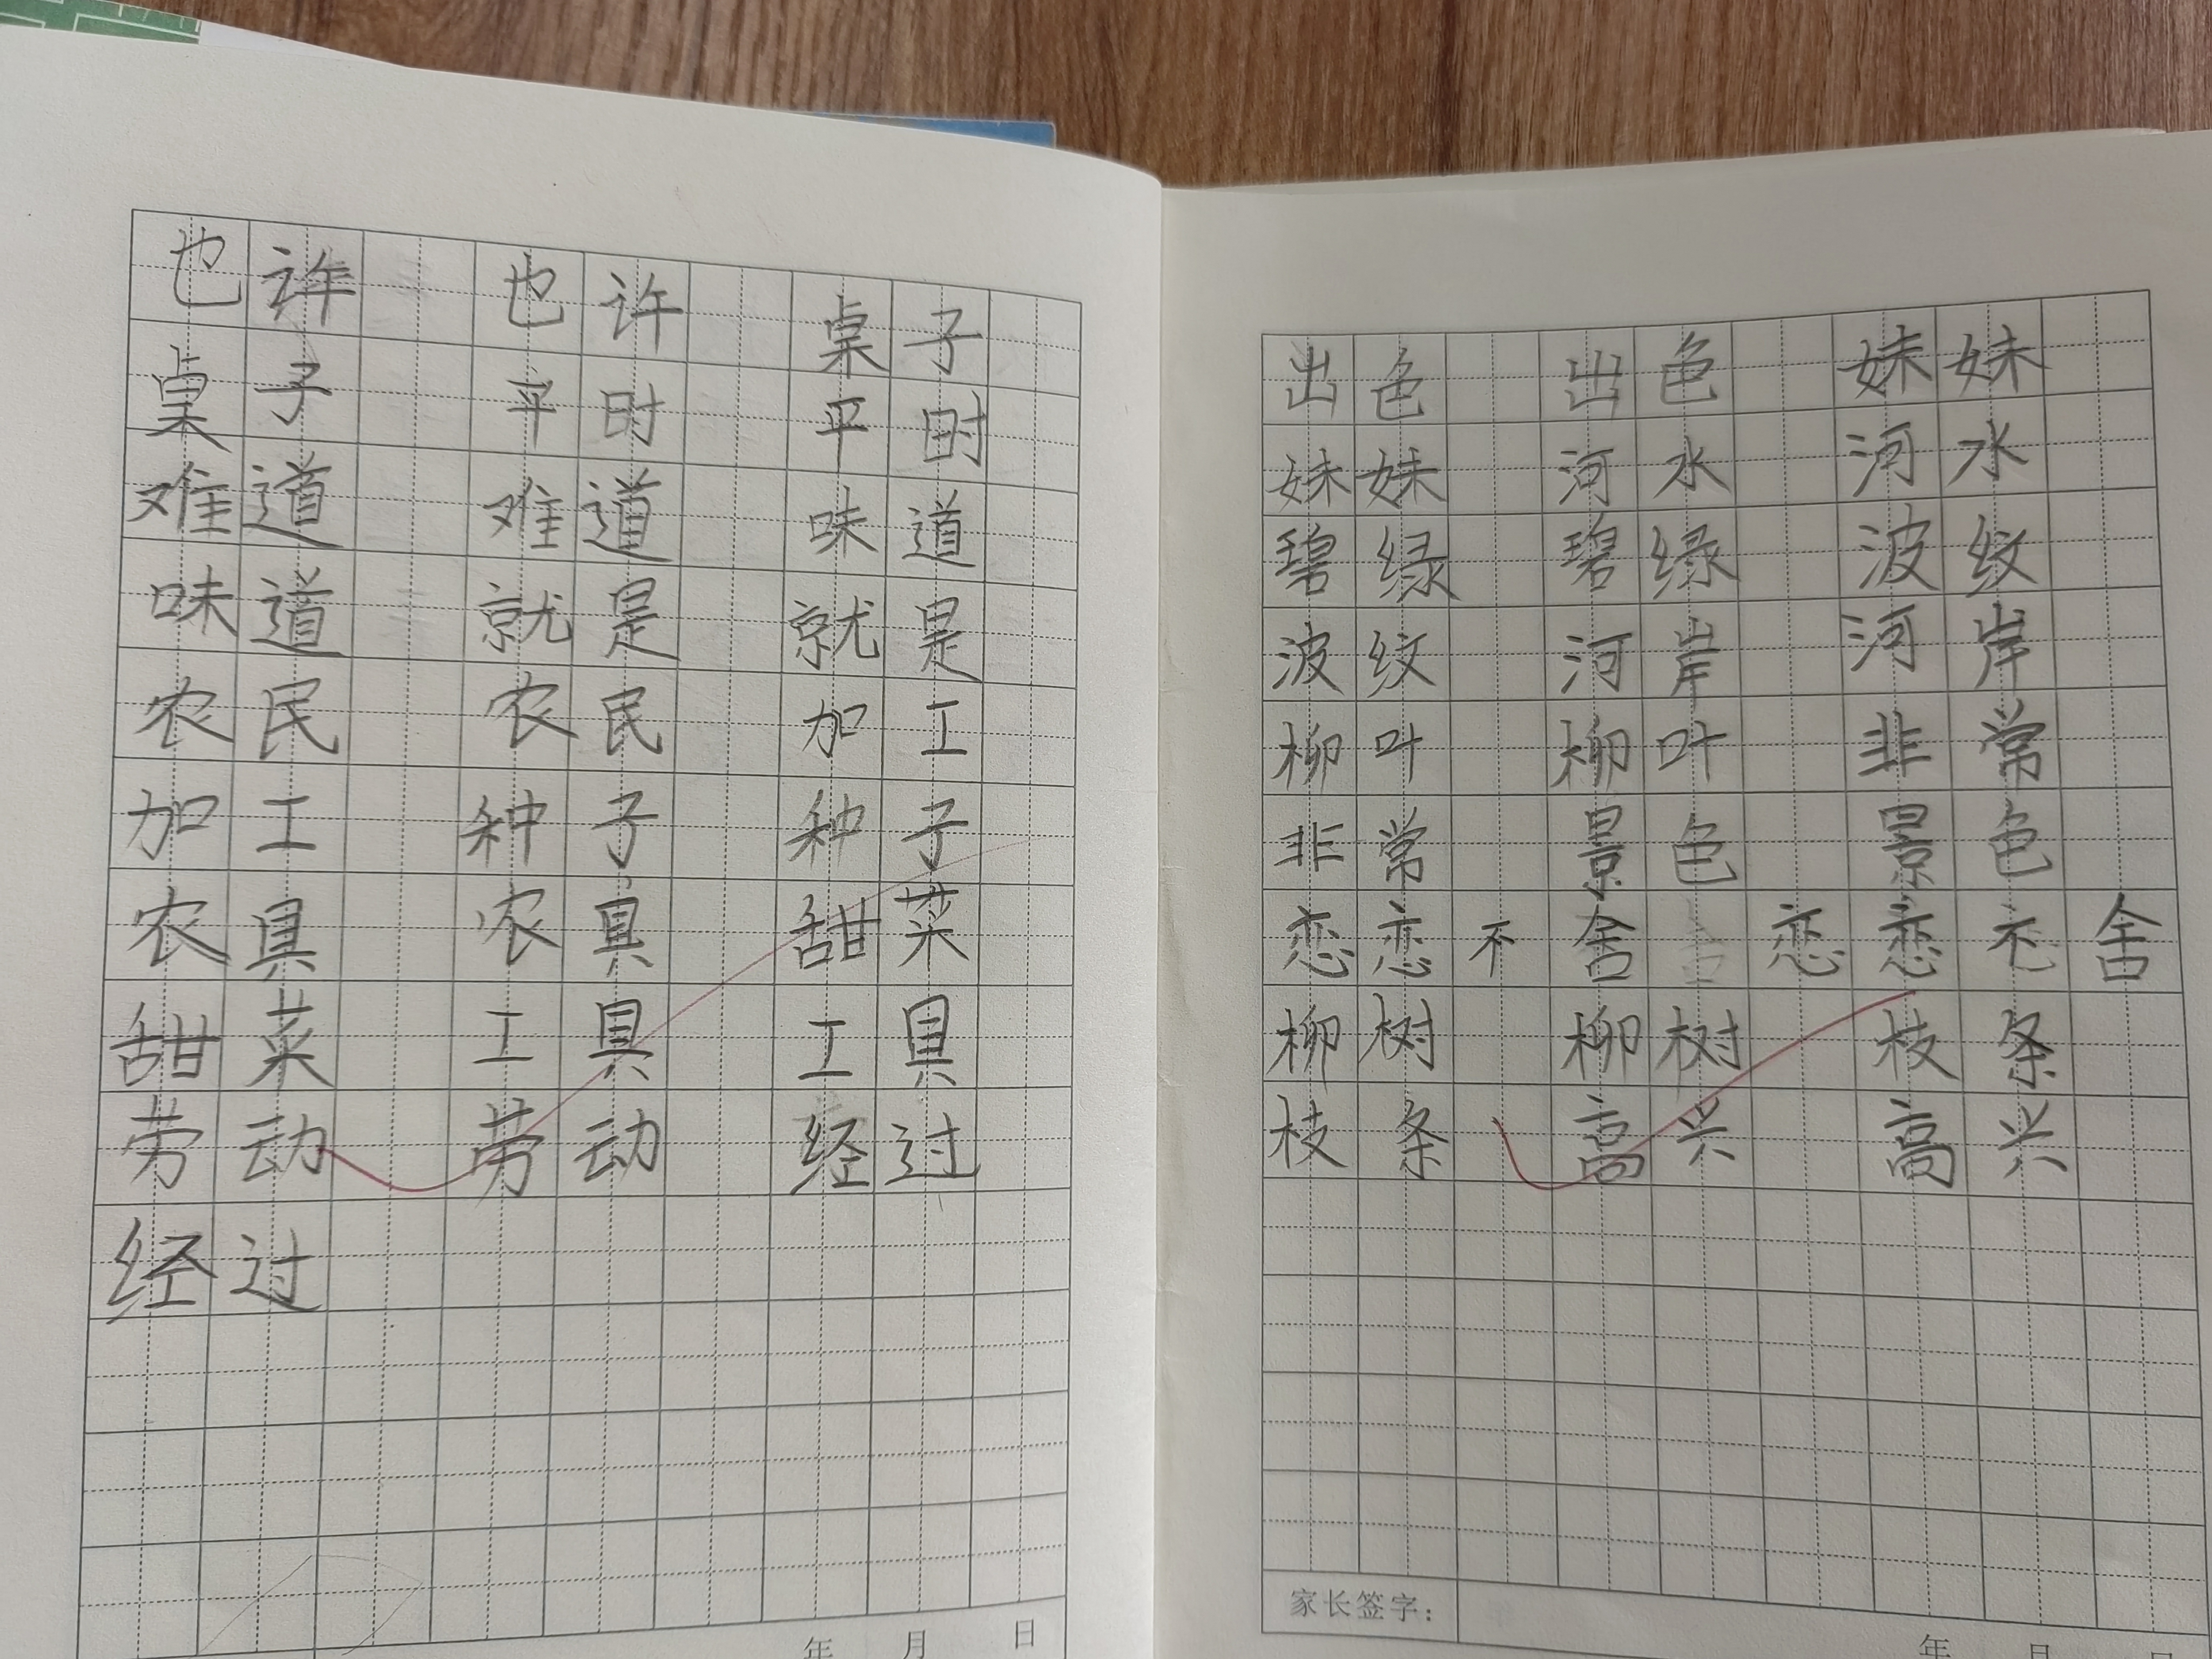 也许 也许 桌子
桌子 平时 平时
难道 难道 味道
味道 就是 就是
农民 农民 加工
加工 种子 种子
农具 农具 甜菜
甜菜 工具 工具
劳动 劳动 经过
经过
年 月 日
出色 出色 妹妹
妹妹 河水 河水
碧绿 碧绿 波纹
波纹 河岸 河岸
柳叶 柳叶 非常
非常 景色 景色
恋恋不舍 恋恋不舍
柳树 柳树 枝条
枝条 高兴 高兴
家长签字：
年 月 日